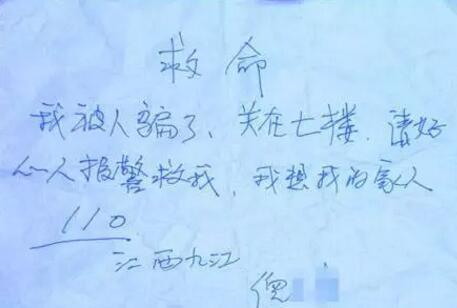 救命
我被人骗了、关在七楼.请好
心人报警救我,我想我的家人
110
江西九江